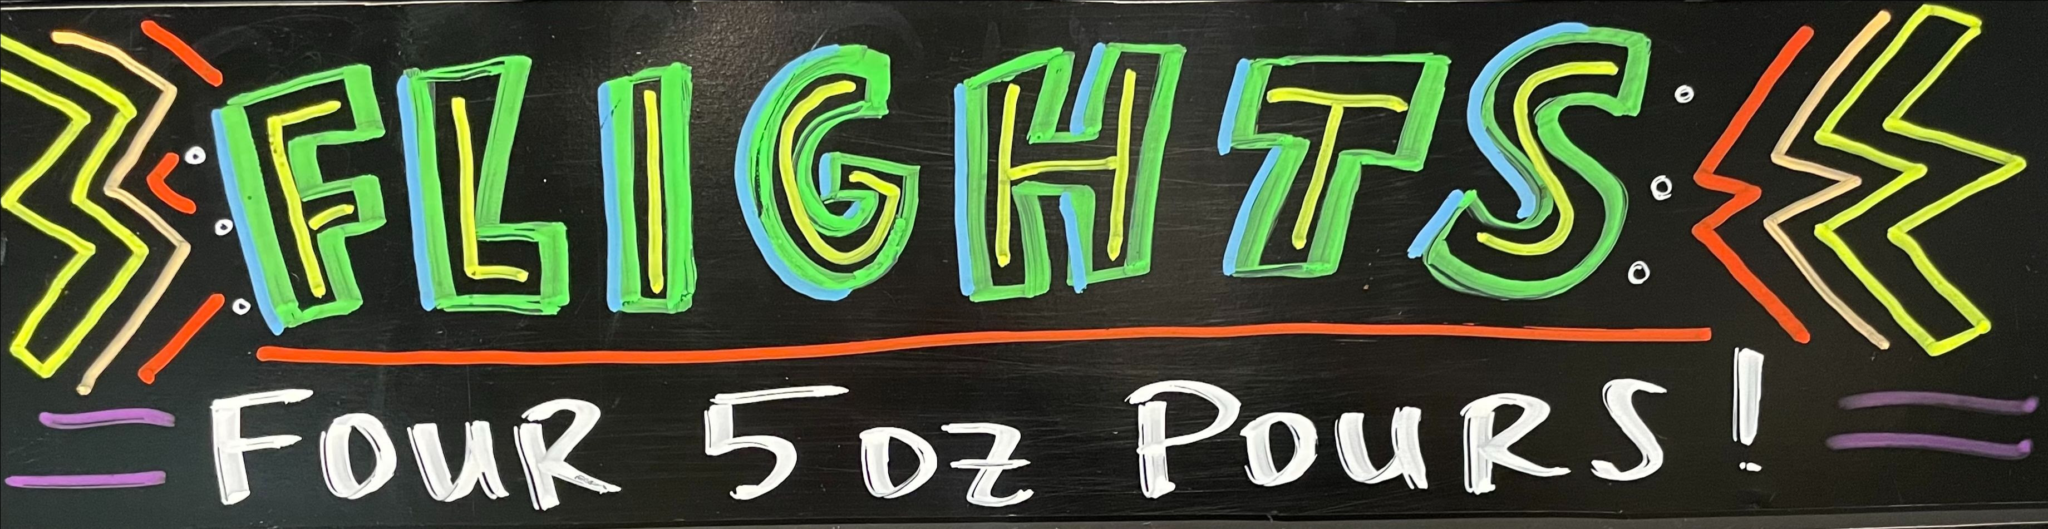 FLIGHTS
FOUR 5 OZ POURS!